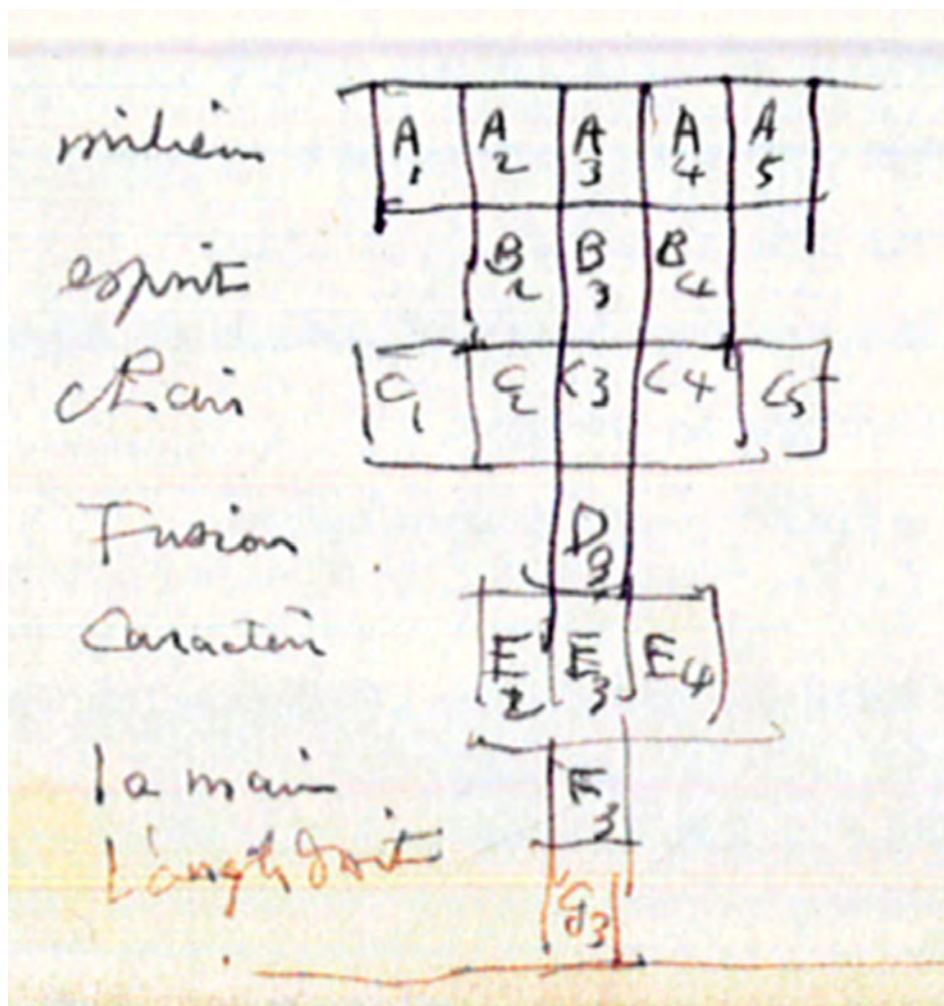 milieu A1 A2 A3 A4 A5
esprit B2 B3 B4
chair C1 C2 C3 C4 C5
Fusion D3
Caractère E2 E3 E4
la main F3
L'angle droit G3